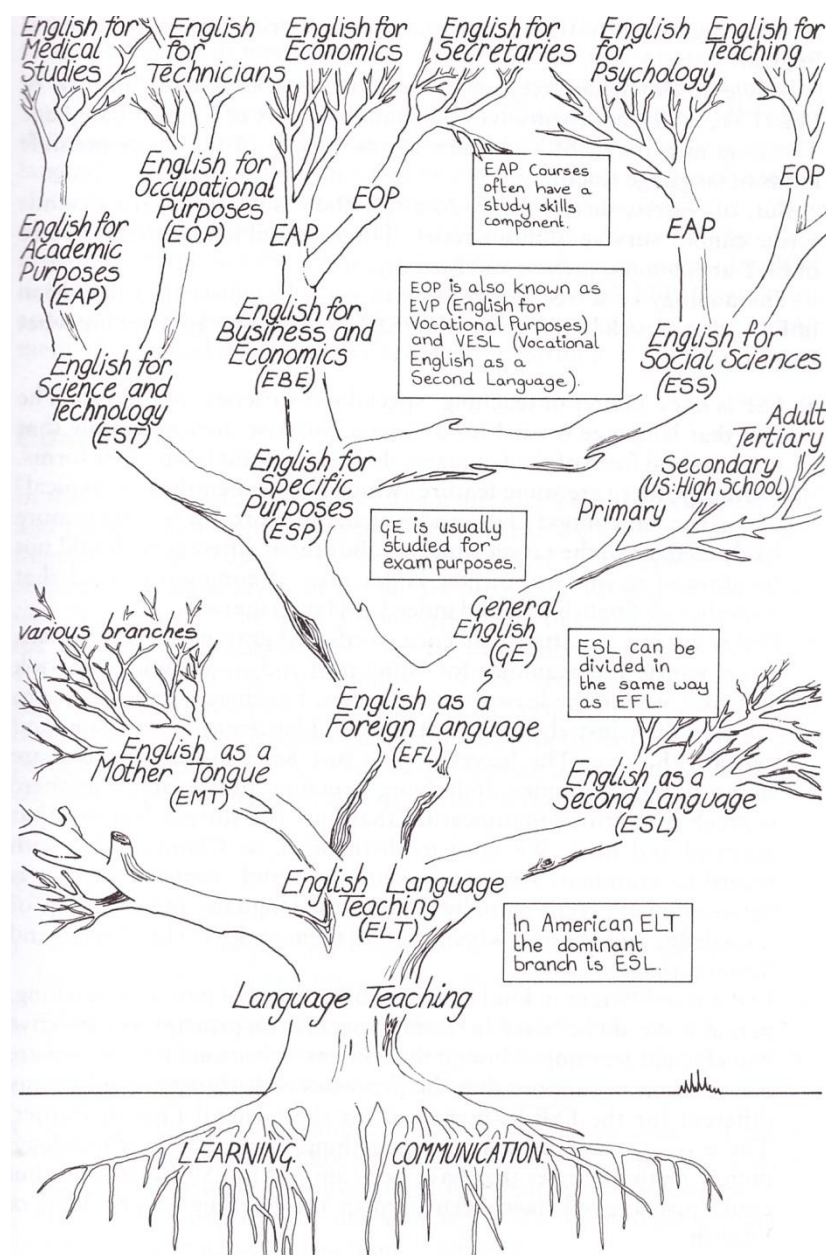 English for
Medical
Studies
English
for
Technicians
English for
Economics
English for
Secretaries
English
for
Psychology
English for
Teaching
English for
Occupational
Purposes
(EOP)
EOP
EAP Courses
often have a
study skills
component.
EOP
English for
Academic
Purposes
(EAP)
EAP
EAP
EOP is also known as
EVP (English for
Vocational Purposes)
and VESL (Vocational
English as a
Second Language).
English for
Science and
Technology
(EST)
English for
Business and
Economics
(EBE)
English for
Social Sciences
(ESS)
Adult
Tertiary
Secondary
(US:High School)
Primary
English for
Specific
Purposes
(ESP)
GE is usually
studied for
exam purposes.
General
English
(GE)
various branches
ESL can be
divided in
the same way
as EFL.
English as a
Foreign Language
(EFL)
English as a
Mother Tongue
(EMT)
English as a
Second Language
(ESL)
English Language
Teaching
(ELT)
In American ELT
the dominant
branch is ESL.
Language Teaching
LEARNING
COMMUNICATION